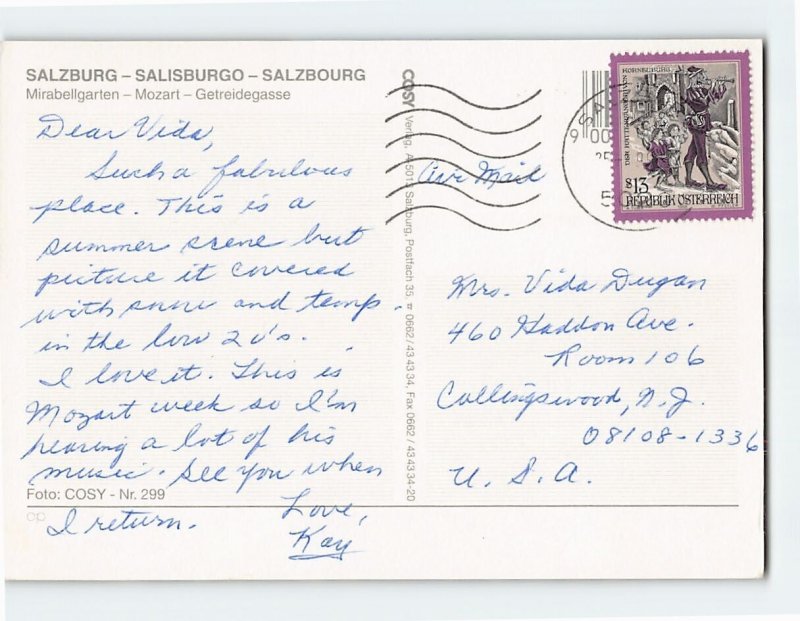 SALZBURG – SALISBURGO – SALZBOURG
Mirabellgarten – Mozart – Getreidegasse
Dear Vida,
Such a fabulous
place. This is a
summer scene but
picture it covered
with snow and temp.
in the low 20's.
I love it. This is
Mozart week so I'm
hearing a lot of his
music. See you when
Foto: COSY - Nr. 299
I return.
Love,
Kay
COSY Verlag, A-5015 Salzburg, Postfach 35, ☎ 0662/43 43 34, Fax 0662/43 43 34-20
Air Mail
DER RATTENFÄNGER VON
KORNEUBURG
S13
REPUBLIK ÖSTERREICH
Mrs. Vida Dugan
460 Haddon Ave.
Room 106
Collingswood, N.J.
08108-1336
U. S. A.